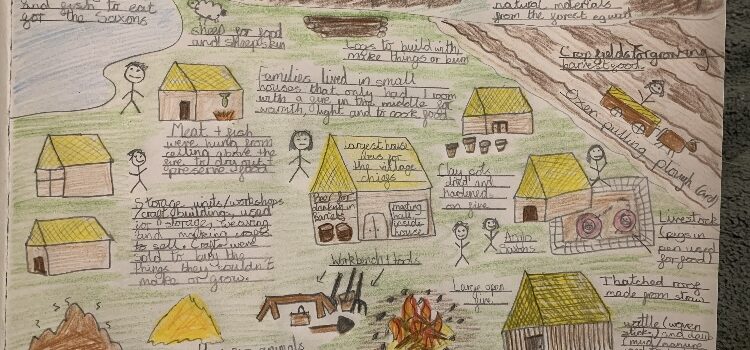 and fish to eat
for the Saxons
sheep for food
and sheepskin
Logs to build with,
make things or burn
natural materials
from the forest
Crop fields for growing
harvest food
Oxen pulling plough (ard)
Families lived in small
houses that only had 1 room
with a fire in the middle for
warmth, light and to cook food
Meat + fish
were hung from
ceiling above the
fire to dry out +
preserve food
Largest house
was for
the village
chief
Beer for
drinking in
barrels
meeting
hall
beside
house
Clay pots
dried and
hardened
on fire
Storage units/workshops
/craft buildings, used
for storage, weaving
and making
to sell. Crafts were
sold to buy the
things they couldn't
make or grow.
Anglo
Saxons
Livestock
(pigs in
pen used
for food)
Workbench + tools
Large open
fire
Thatched roof
made from straw
wattle (woven
sticks) and daub
(mud/manure
animals